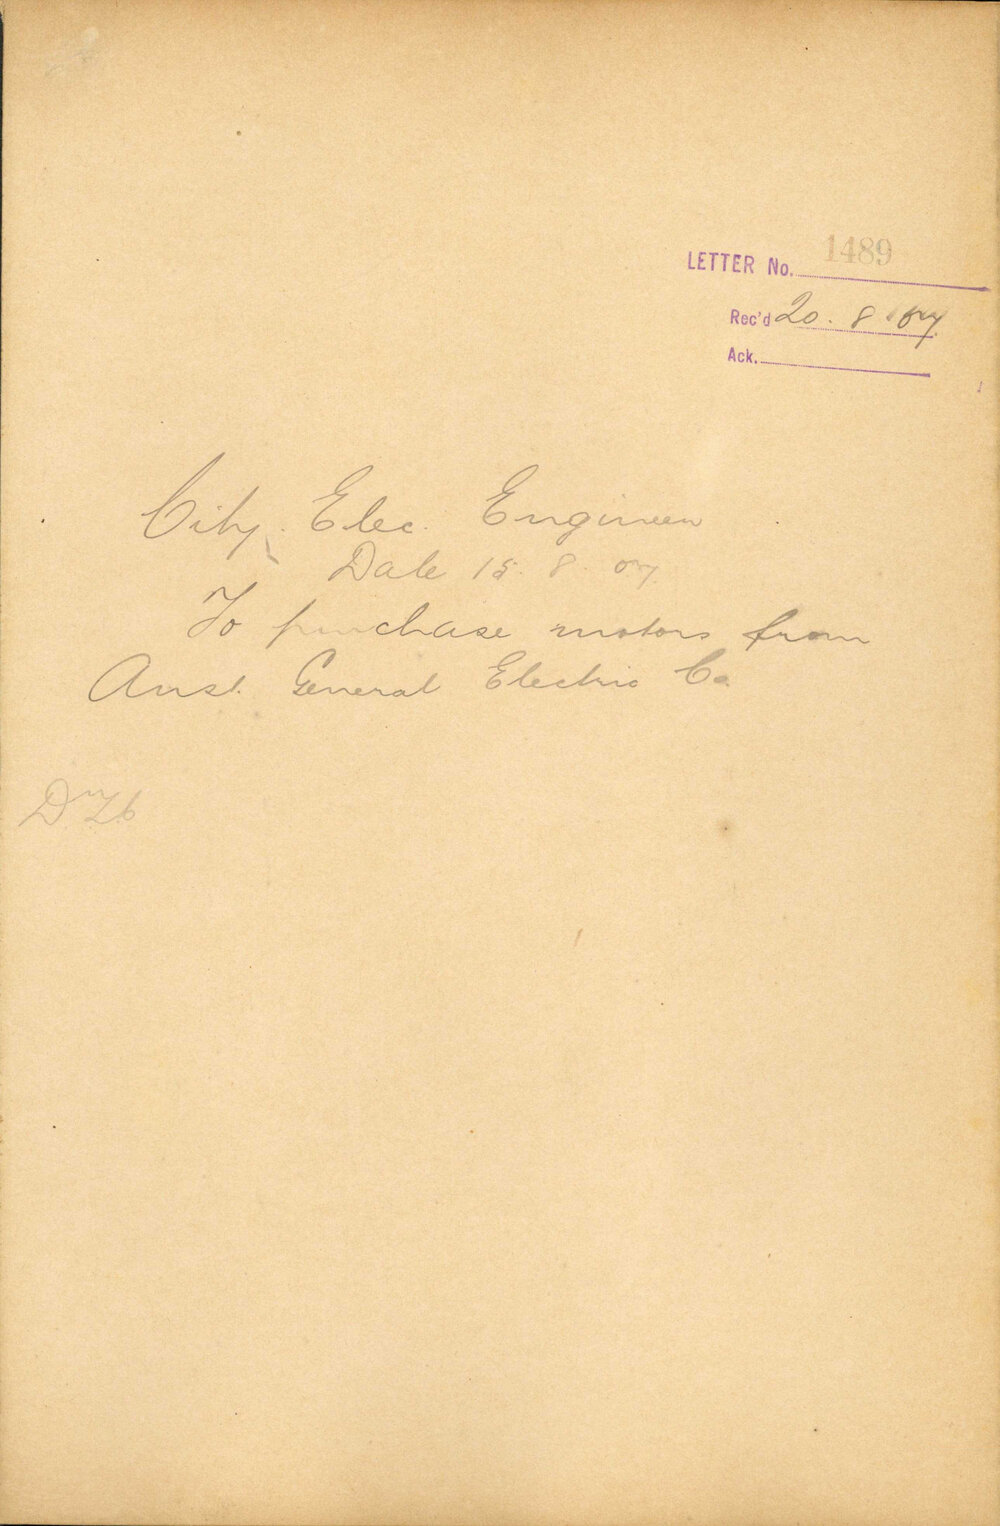 LETTER No. 1489
Rec'd 20. 8 '07
Ack.
City Elec. Engineer
Date 15. 8. 07
To purchase motors from
Aust. General Electric Co.